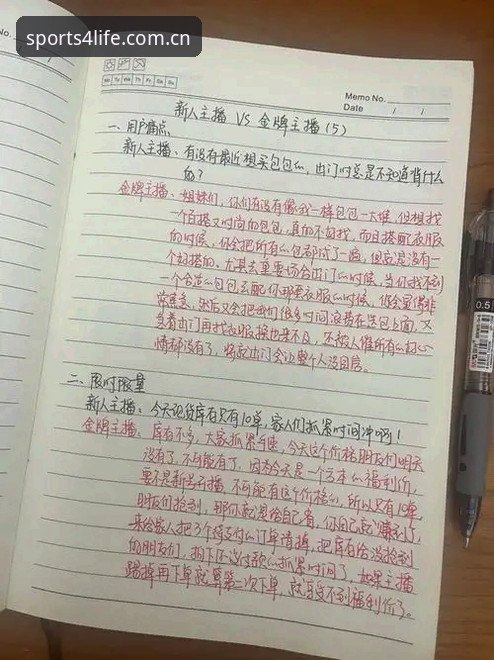 sports4life.com.cn
No.
Mo Tu We Th Fr Sa Su
Memo No.
Date / /
新人主播 VS 金牌主播(5)
一、用户痛点
新人主播、有没有最近想买包包的,出门时总是不知道背什么
的?
金牌主播、姐妹们,你们有没有像我一样包包一大堆,但想找
一个百搭又时尚的包包,真的不好找,而且搭配衣服
的时候,你会把所有的包都试了一遍,但就是没有一
个好搭的。尤其去重要场合出门的时候,当你找不到
一个合适的包包去配你那套衣服的时候,你会觉得非
常
然后又会把咱们很多时间浪费在选包上面,又
急着出门再找衣服换也来不及,还被人催所有的好心
情都没有了,将就出门会让整个人没自信。
二、限时限量
新人主播、今天现货库存只有10单,家人们抓紧时间冲啊!
金牌主播、库存不多,大家抓紧
今天这个价格朋友们明天
没有了,不可能有了,因为今天是一个亏本的福利价,
要不是新号开播,不可能有这个价格的,所以只有10单
朋友们抢到,那你就是给自己省,你自己就赚到了,
来给家人把3个待支付的订单清掉,把库存给没抢到
的朋友们,拍下还没付款的抓紧时间了,如果主播
踢掉再下单就算第二次下单,就享受不到福利价了。
0.5